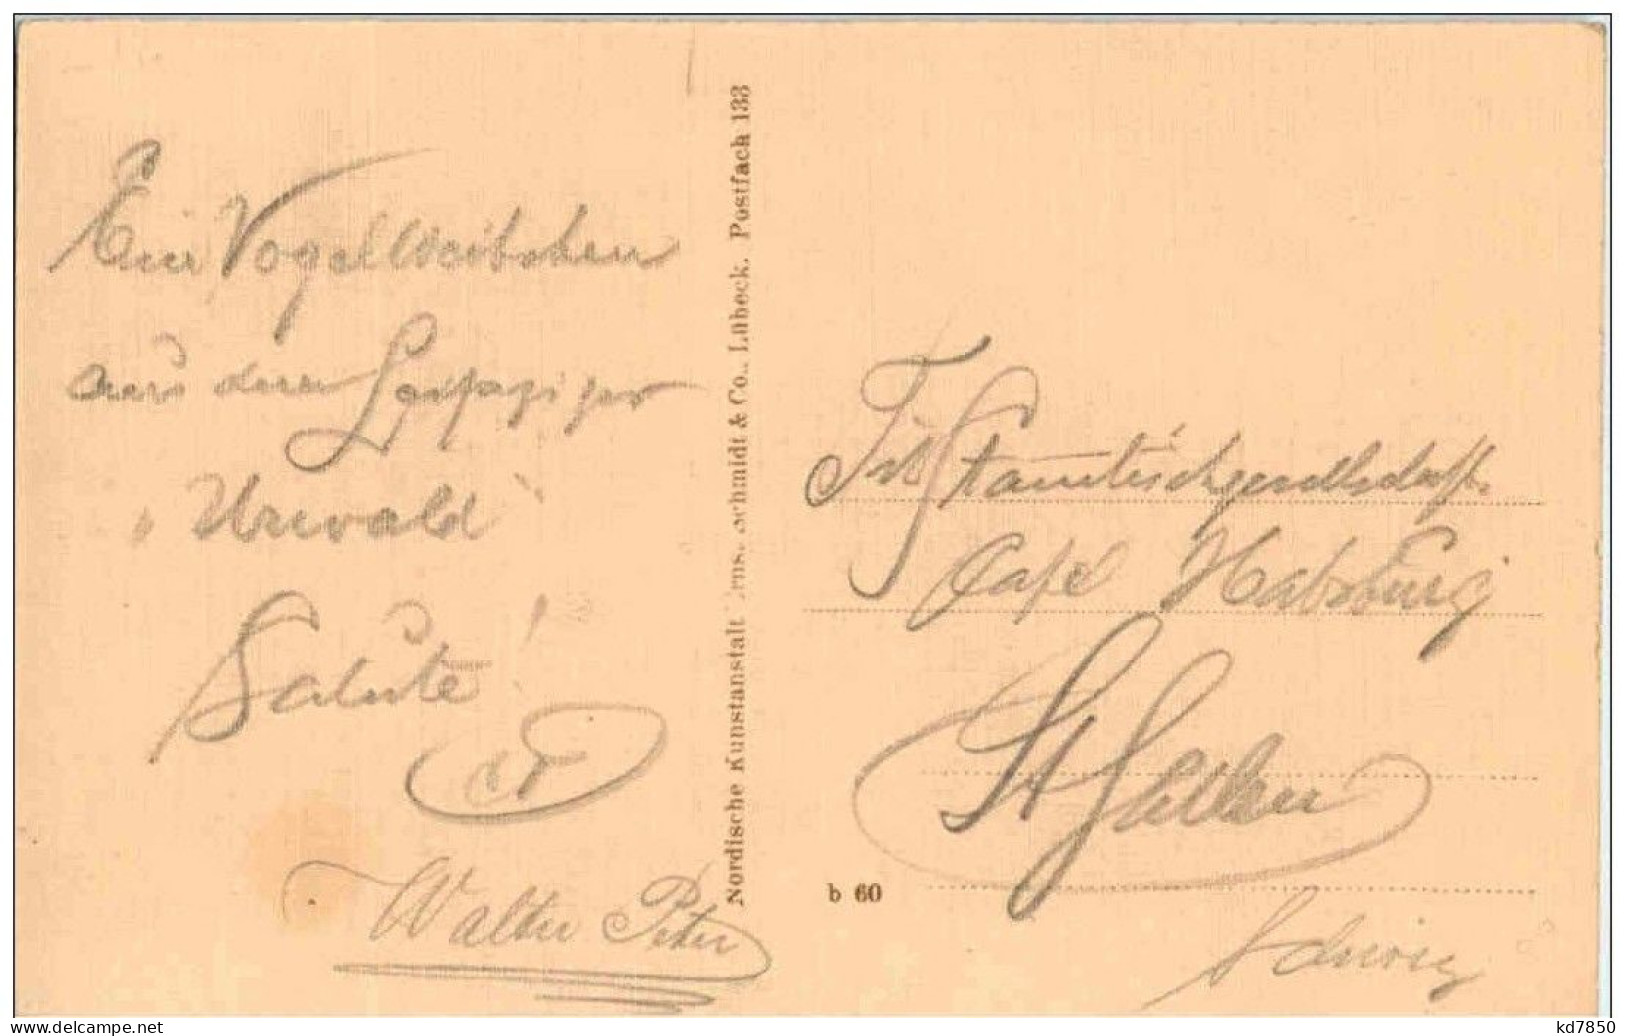 Ein Vogel
aus dem Leipziger
„Urwald"
Salute!
Walter Peter
Nordische Kunstanstalt Ernst Schmidt & Co., Lübeck. Postfach 133
b 60
Tit. Stammtischgesellschaft
Café Habsburg
St Gallen
Schweiz
kd7850